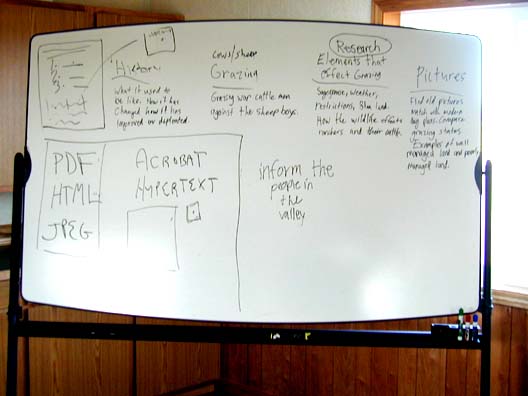 History
What it used to
be like. How it has
Changed how it has
improved or depleated.
cows/sheep
Grazing
Grazing war cattle men
against the sheep boys.
Research
Elements that
effect Grazing
Sagegrouse, weather,
restrictions, Blm land.
How the wildlife effects
ranchers and their cattle.
Pictures
Find old pictures
match with modern
day places. Compare
grazing status.
Examples of well
managed land and poorly
managed land.
PDF
HTML
JPEG
ACROBAT
HYPERTEXT
inform the
people in
the
valley